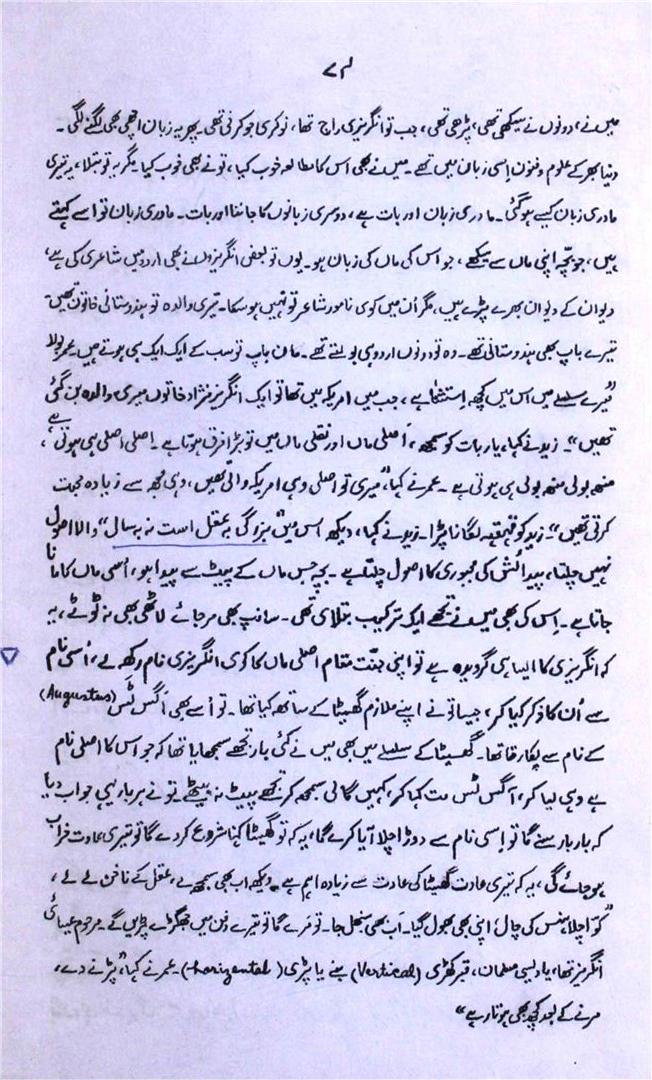 ۷۴
میں نے، دونوں نے سیکھی تھی، پڑھی تھی، جب تو انگریزی راج تھا، نوکری جو کرنی تھی۔ پھر یہ زبان اچھی بھی لگنے لگی۔
دنیا بھر کے علوم و فنون اِسی زبان میں تھے۔ میں نے بھی اس کا مطالعہ خوب کیا، تو نے بھی خوب کیا۔ مگر یہ تو بتلا، یہ تیری
مادری زبان کیسے ہو گئی۔ مادری زبان اور بات ہے، دوسری زبانوں کا جاننا اور بات۔ مادری زبان تو اسے کہتے
ہیں، جو بچّہ اپنی ماں سے سیکھے، جو اس کی ماں کی زبان ہو۔ یوں تو بعض انگریزوں نے بھی اردو میں شاعری کی ہے،
دیوان کے دیوان بھرے پڑے ہیں، مگر اُن میں کوئی نامور شاعر تو نہیں ہو سکا۔ تیری والدہ تو ہندوستانی خاتون تھیں۔
تیرے باپ بھی ہندوستانی تھے۔ وہ تو دونوں اردو ہی بولتے تھے۔ ماں باپ تو سب کے ایک ایک ہی ہوتے ہیں۔ عمر بولا
”میرے سلسلے میں اس میں کچھ اِستثنٰیٰ ہے، جب میں امریکہ میں تھا تو ایک انگریز نژاد خاتون میری والدہ بن گئی
تھیں“۔ زید نے کہا، یار بات کو سمجھ، اَصلی ماں اور نقلی ماں میں تو بڑا فرق ہوتا ہے۔ اِصلی اصلی ہی ہوتی ہے،
منھ بولی منھ بولی ہی ہوتی ہے۔ عمر نے کہا، ”میری تو اصلی وہی امریکہ والی تھیں، وہی مجھ سے زیادہ محبت
کرتی تھیں“۔ زید کو قہقہہ لگانا پڑا۔ زید نے کہا، دیکھ اس میں ”بزرگی بہ عقل است نہ بہ سال“ والا اصول
نہیں چلتا، پیدائش کی مجبوری کا اصول چلتا ہے۔ بچہ جس ماں کے پیٹ سے پیدا ہو، اُسی ماں کا مانا
جاتا ہے۔ اِس کی بھی میں نے تجھے ایک ترکیب بتلائی تھی۔ سانپ بھی مر جائے لاٹھی بھی نہ ٹوٹے، یہ
کہ انگریزی کا ایسا ہی گرویدہ ہے تو اپنی جنّت مقام اصلی ماں کا کوئی انگریزی نام رکھ لے، اُسی نام
سے اُن کا ذکر کیا کر، جیسا تو نے اپنے ملازم گھسیٹا کے ساتھ کیا تھا۔ تو اُسے بھی اَگَس ٹَس (Augustus)
کے نام سے پکارتا تھا۔ گھسیٹا کے سلسلے میں بھی میں نے کئی بار تجھے سمجھایا تھا کہ جو اس کا اصلی نام
ہے وہی لیا کر، آگس ٹس مت کہا کر، کہیں گالی سمجھ کر تجھے پیٹ نہ بیٹھے۔ تو نے ہر بار یہی جواب دیا
کہ بار بار سنے گا تو اِسی نام سے دوڑا چلا آیا کرے گا، یہ کہ تو گھسیٹا کہنا شروع کر دے گا تو تیری عادت خراب
ہو جائے گی، یہ کہ تیری عادت گھسیٹا کی عادت سے زیادہ اہم ہے۔ دیکھ اب بھی سمجھ لے، عقل کے ناخن لے لے،
”کوّا چلا ہنس کی چال، اپنی بھی بھول گیا۔ اَب بھی سنبھل جا۔ تو مرے گا تو تیرے دفن میں جھگڑے پڑیں گے۔ مرحوم عیسائی
انگریز تھا، یا دیسی مسلمان، قبر کھڑی (Vertical) بنے یا پڑی (horizental)۔ عمر نے کہا، ”پڑنے دے،
مرنے کے بعد کچھ بھی ہوتا رہے“